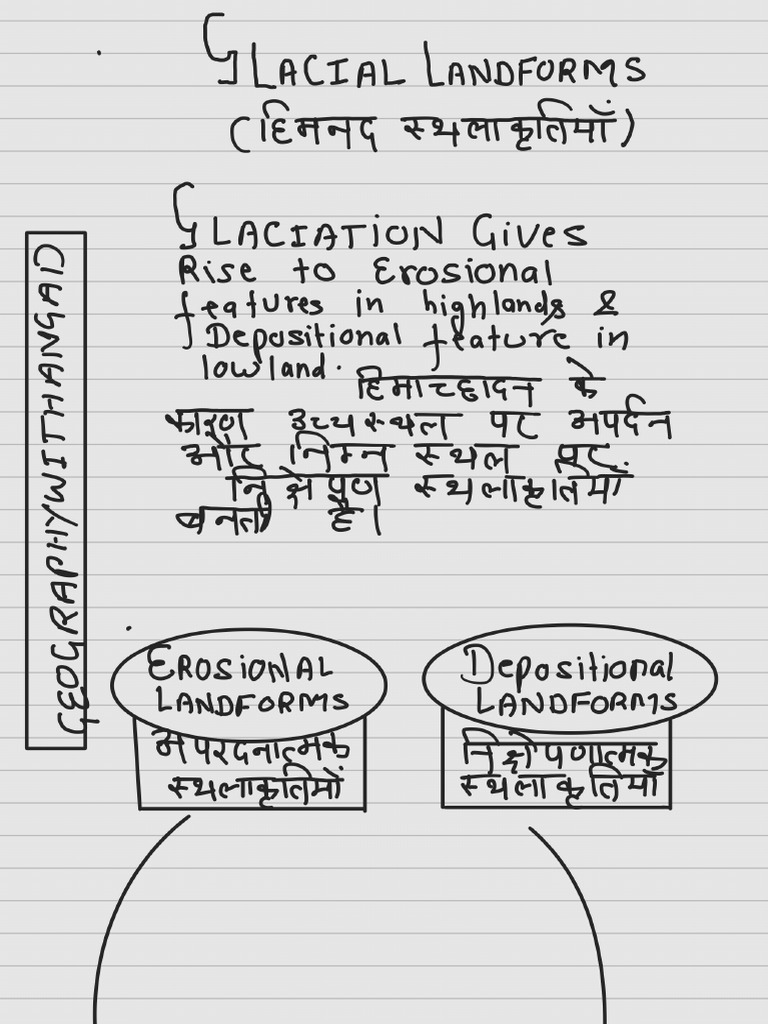 GLACIAL LANDFORMS
(हिमनद स्थलाकृतियाँ)
GLACIATION Gives
Rise to Erosional
features in highlands &
Depositional feature in
lowland.
हिमाच्छादन के
कारण उच्चस्थल पर अपर्दन
और निम्न स्थल पर
निक्षेपण स्थलाकृतियाँ
बनती है।
GEOGRAPHYWITHANGAD
EROSIONAL
LANDFORMS
अपरदनात्मक
स्थलाकृतियाँ
Depositional
LANDFORMS
निक्षेपणात्मक
स्थलाकृतियाँ